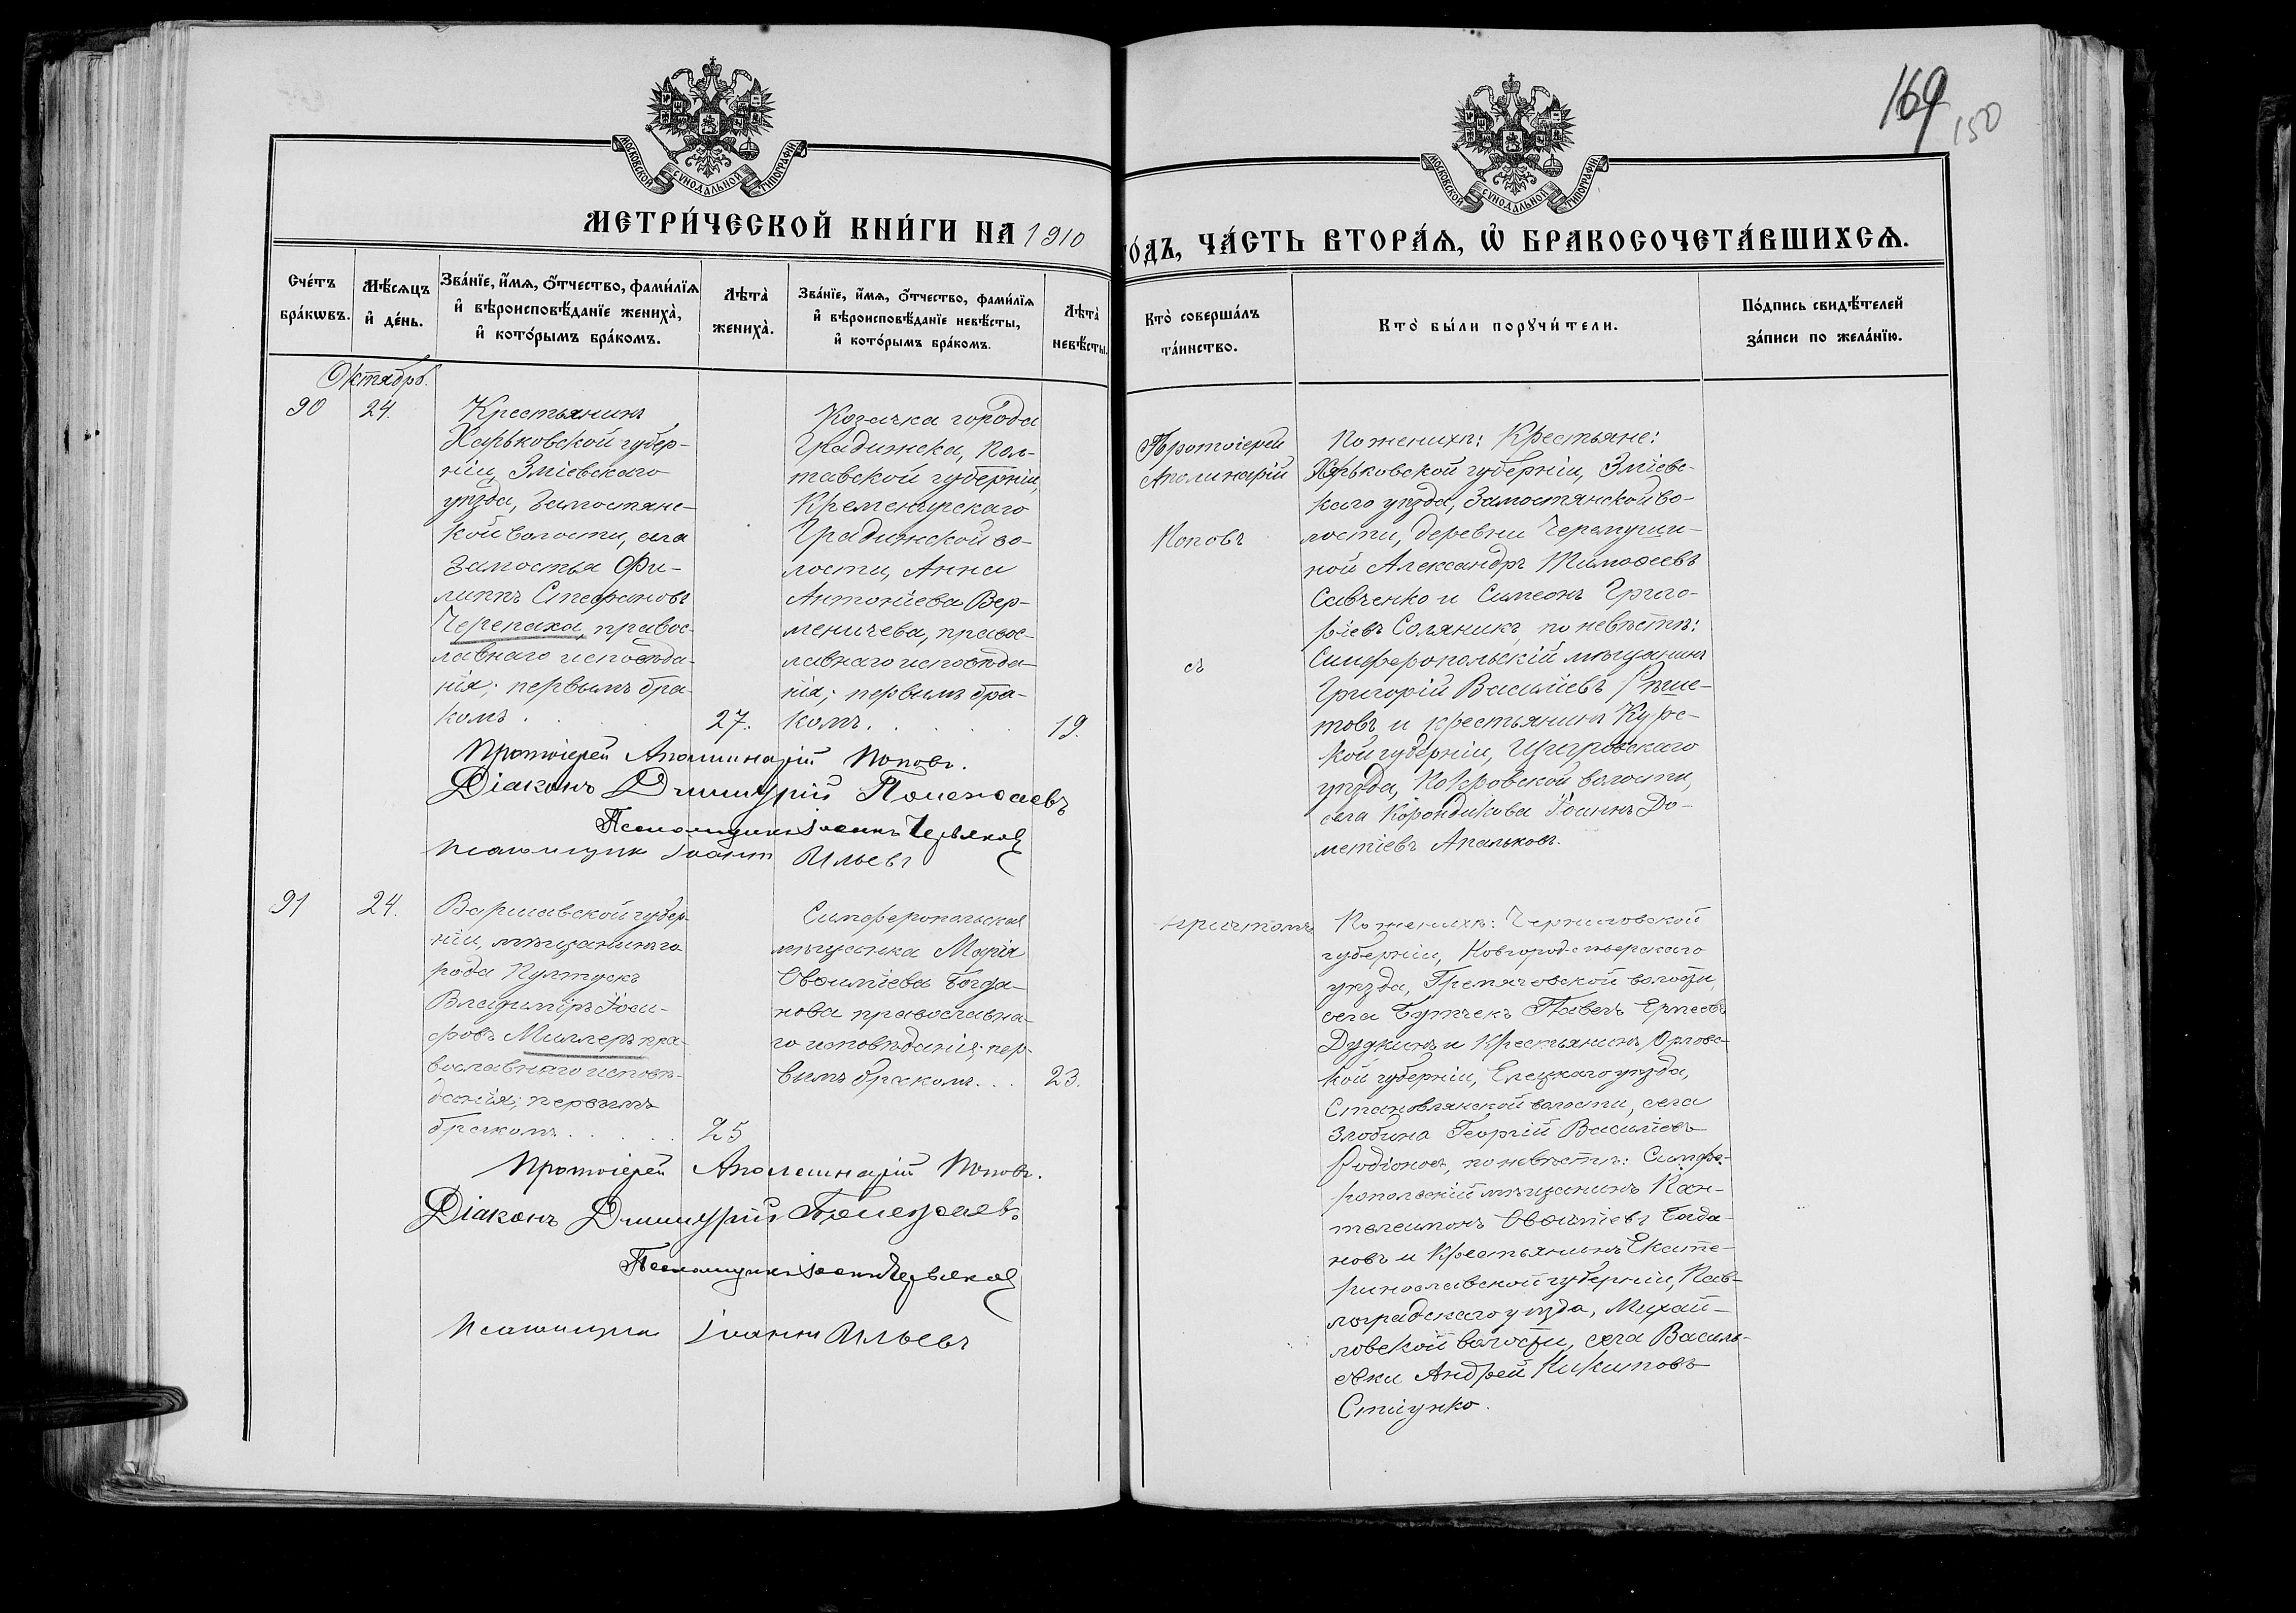 169
150
МОСКОВСКОЙ СѴНОДАЛЬНОЙ ТИПОГРАФІИ
МОСКОВСКОЙ СѴНОДАЛЬНОЙ ТИПОГРАФІИ
МЕТРИ́ЧЕСКОЙ КНИ́ГИ НА 1910
ГО́ДЪ, ЧА́СТЬ ВТОРА́Я, Ѡ҆ БРАКОСОЧЕТА́ВШИХСЯ.
Сче́тъ
бра́кѡвъ.
Мѣ́сяцъ
и҆ де́нь.
Зва́нїе, и҆́мя, ѻ҆́тчество, фами́лїя
и҆ вѣроисповѣ́данїе жениха̀,
и҆ кото́рымъ бра́комъ.
Лѣ́та̀
жениха̀.
Зва́нїе, и҆́мя, ѻ҆́тчество, фами́лїя
и҆ вѣроисповѣ́данїе невѣ́сты,
и҆ кото́рымъ бра́комъ.
Лѣ́та̀
невѣ́сты.
Кто̀ соверша́лъ
та́инство.
Кто̀ бы́ли порꙋчи́тели.
По́дпись свидѣ́телей
за́писи по жела́нїю.
Октябрь.
90
24.
Крестьянинъ
Харьковской губер-
ніи, Зміевскаго
уѣзда, Замостянс-
кой волости, села
Замостья Фи-
липпъ Стефановъ
Черепаха, правос-
лавнаго исповѣда-
нія; первымъ бра-
комъ.
27.
Козачка города
Градижска, Пол-
тавской губерніи,
Кременчугскаго
Градижской во-
лости, Анна
Антоніева Вер-
меничева, правос-
лавнаго исповѣда-
нія; первымъ бра-
комъ.
19.
Протоіерей
Аполинарій
Поповъ
съ
По женихѣ: Крестьяне:
Харьковской губерніи, Зміевс-
каго уѣзда, Замостянской во-
лости, деревни Черемуш-
ной Александръ Тимофеевъ
Савченко и Симеонъ Григо-
ріевъ Соляникъ, по невѣстѣ:
Симферопольскій мѣщанинъ
Григорій Василіевъ Рѣше-
товъ и крестьянинъ Курс-
кой губерніи, Щигровскаго
уѣзда, Покровской волости,
села Іоаннъ До-
метіевъ Апальковъ.
Протоіерей Аполлинарій Поповъ.
Діаконъ Димитрій
Псаломщикъ Іоаннъ Червяковъ
Псаломщикъ Іоаннъ Ильевъ
91
24.
Варшавской губер-
ніи, мѣщанин го-
рода Пултускъ
Владиміръ Іоси-
фовъ Миллеръ пра-
вославнаго исповѣ-
данія; первымъ
бракомъ.
25
Симферопольская
мѣщанка Марія
Богда-
нова православна-
го исповѣданія; пер-
вымъ бракомъ.
23.
причтомъ
По женихѣ: Черниговской
губерніи, Новгород-сѣверскаго
уѣзда, Гремячевской волости,
села Павелъ
Дудкинъ и Крестьянинъ Орловс-
кой губерніи, Елецкаго уѣзда,
Становлянской волости, села
Злобина Георгій Василіевъ
Родіоновъ, по невѣстѣ: Симфе-
ропольскій мѣщанинъ Пан-
телеимонъ Богда-
новъ и Крестьянинъ Екате-
ринославской губерніи, Пав-
лоградскаго уѣзда, Михай-
ловской волости, села Василь-
евки Андрей Никитовъ
Протоіерей Аполлинарій Поповъ.
Діаконъ Димитрій
Псаломщикъ Іоаннъ Червяковъ
Псаломщикъ Іоаннъ Ильевъ